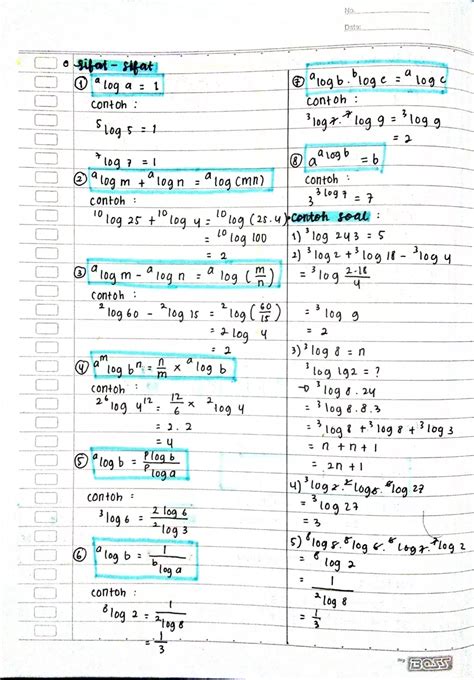 No:
Date:
Sifat - Sifat
① ᵃlog a = 1
contoh :
⁵log 5 = 1
⁷log 7 = 1
② ᵃlog m + ᵃlog n = ᵃlog (mn)
contoh :
¹⁰log 25 + ¹⁰log 4 = ¹⁰log (25.4)
= ¹⁰log 100
= 2
③ ᵃlog m - ᵃlog n = ᵃlog (m/n)
contoh :
²log 60 - ²log 15 = ²log (60/15)
= 2 log 4
= 2
④ aᵐ log bⁿ = n/m × ᵃlog b
contoh :
2⁶ log 4¹² = 12/6 × ²log 4
= 2.2
= 4
⑤ ᵃlog b = ᵖlog b / ᵖlog a
contoh :
³log 6 = 2log 6 / ²log 3
⑥ ᵃlog b = 1 / ᵇlog a
contoh :
⁸log 2 = 1 / ²log 8
= 1/3
⑦ ᵃlog b . ᵇlog c = ᵃlog c
contoh :
³log 7. ⁷log 9 = ³log 9
= 2
⑧ a^(ᵃlog b) = b
contoh :
3^(³log 7) = 7
Contoh Soal :
1) ³log 243 = 5
2) ³log 2 + ³log 18 - ³log 4
= ³log 2.18/4
= ³log 9
= 2
3) ³log 8 = n
³log 192 = ?
→ ³log 8.24
= ³log 8.8.3
= ³log 8 + ³log 8 + ³log 3
= n + n + 1
= 2n + 1
4) ³log 2. ²log 8. ⁸log 27
= ³log 27
= 3
5) ⁸log 5. ⁵log 6. ⁶log 7. ⁷log 2
= ⁸log 2
= 1 / ²log 8
= 1/3
BOSS